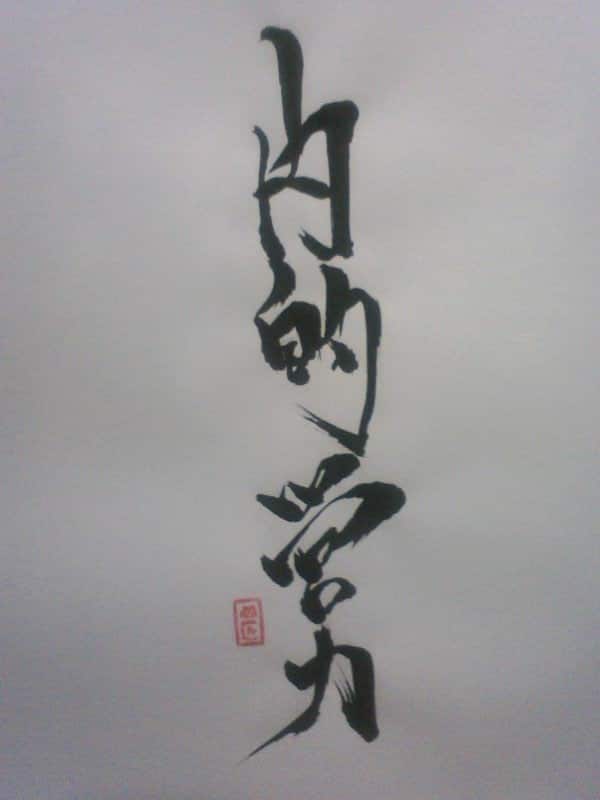 内的営力